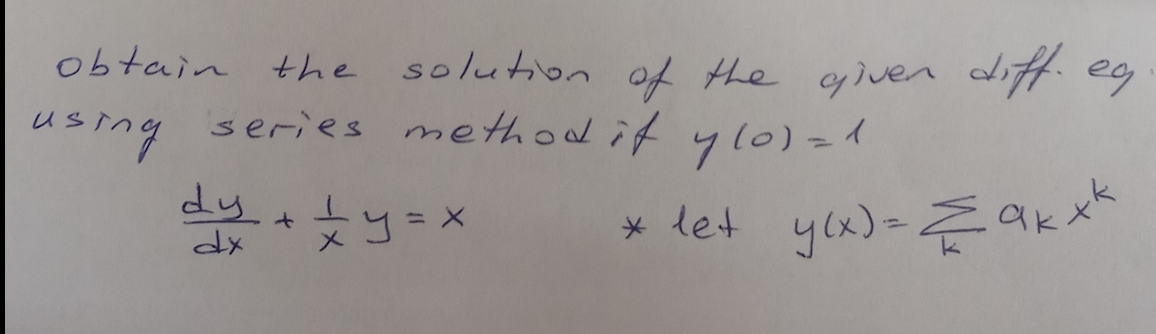 obtain the solution of the given diff. eq.
using series method if y(0)=1
dy/dx + 1/x y = x * let y(x)= Σ_k a_k x^k